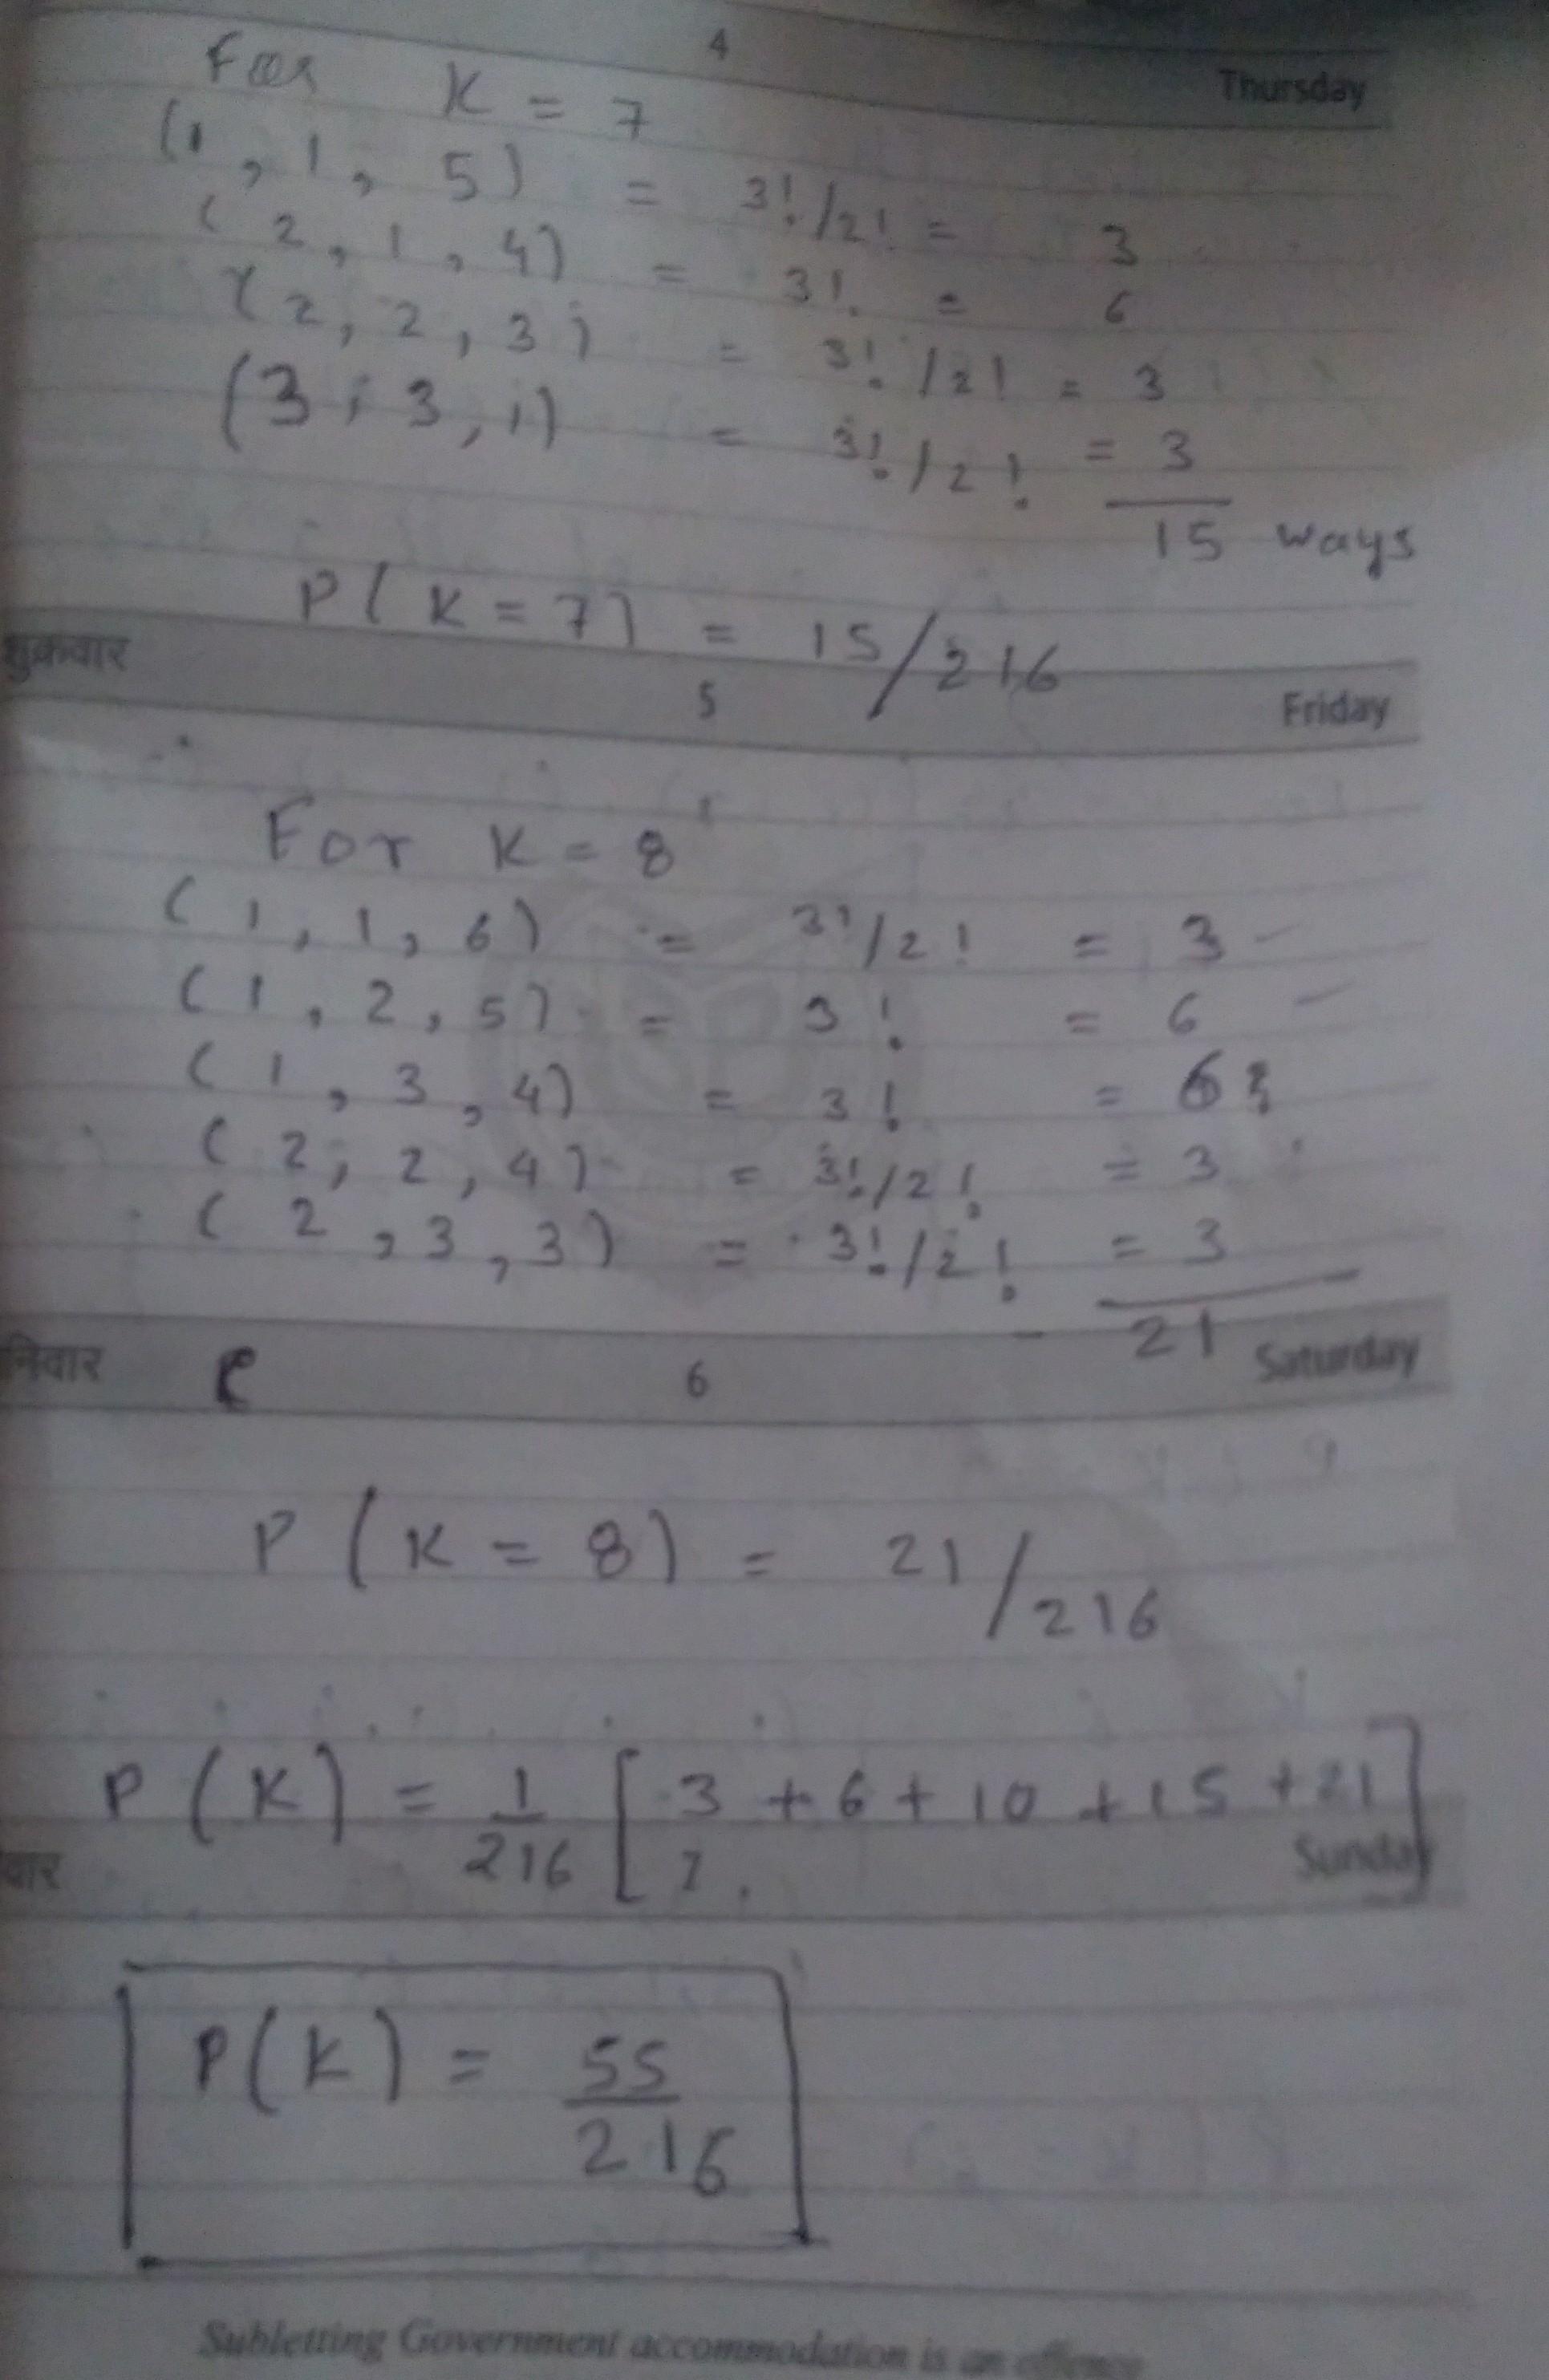 4
Thursday
For K = 7
(1, 1, 5) = 3!/2! = 3
(2, 1, 4) = 3! = 6
(2, 2, 3) = 3!/2! = 3
(3, 3, 1) = 3!/2! = 3
15 ways
P(K=7) = 15/216
शुक्रवार 5 Friday
For K = 8
(1, 1, 6) = 3!/2! = 3
(1, 2, 5) = 3! = 6
(1, 3, 4) = 3! = 6
(2, 2, 4) = 3!/2! = 3
(2, 3, 3) = 3!/2! = 3
21
निवार 6 Saturday
P(K = 8) = 21/216
P(K) = 1/216 [3 + 6 + 10 + 15 + 21]
वार 7 Sunday
P(K) = 55/216
Subletting Government accommodation is an offence